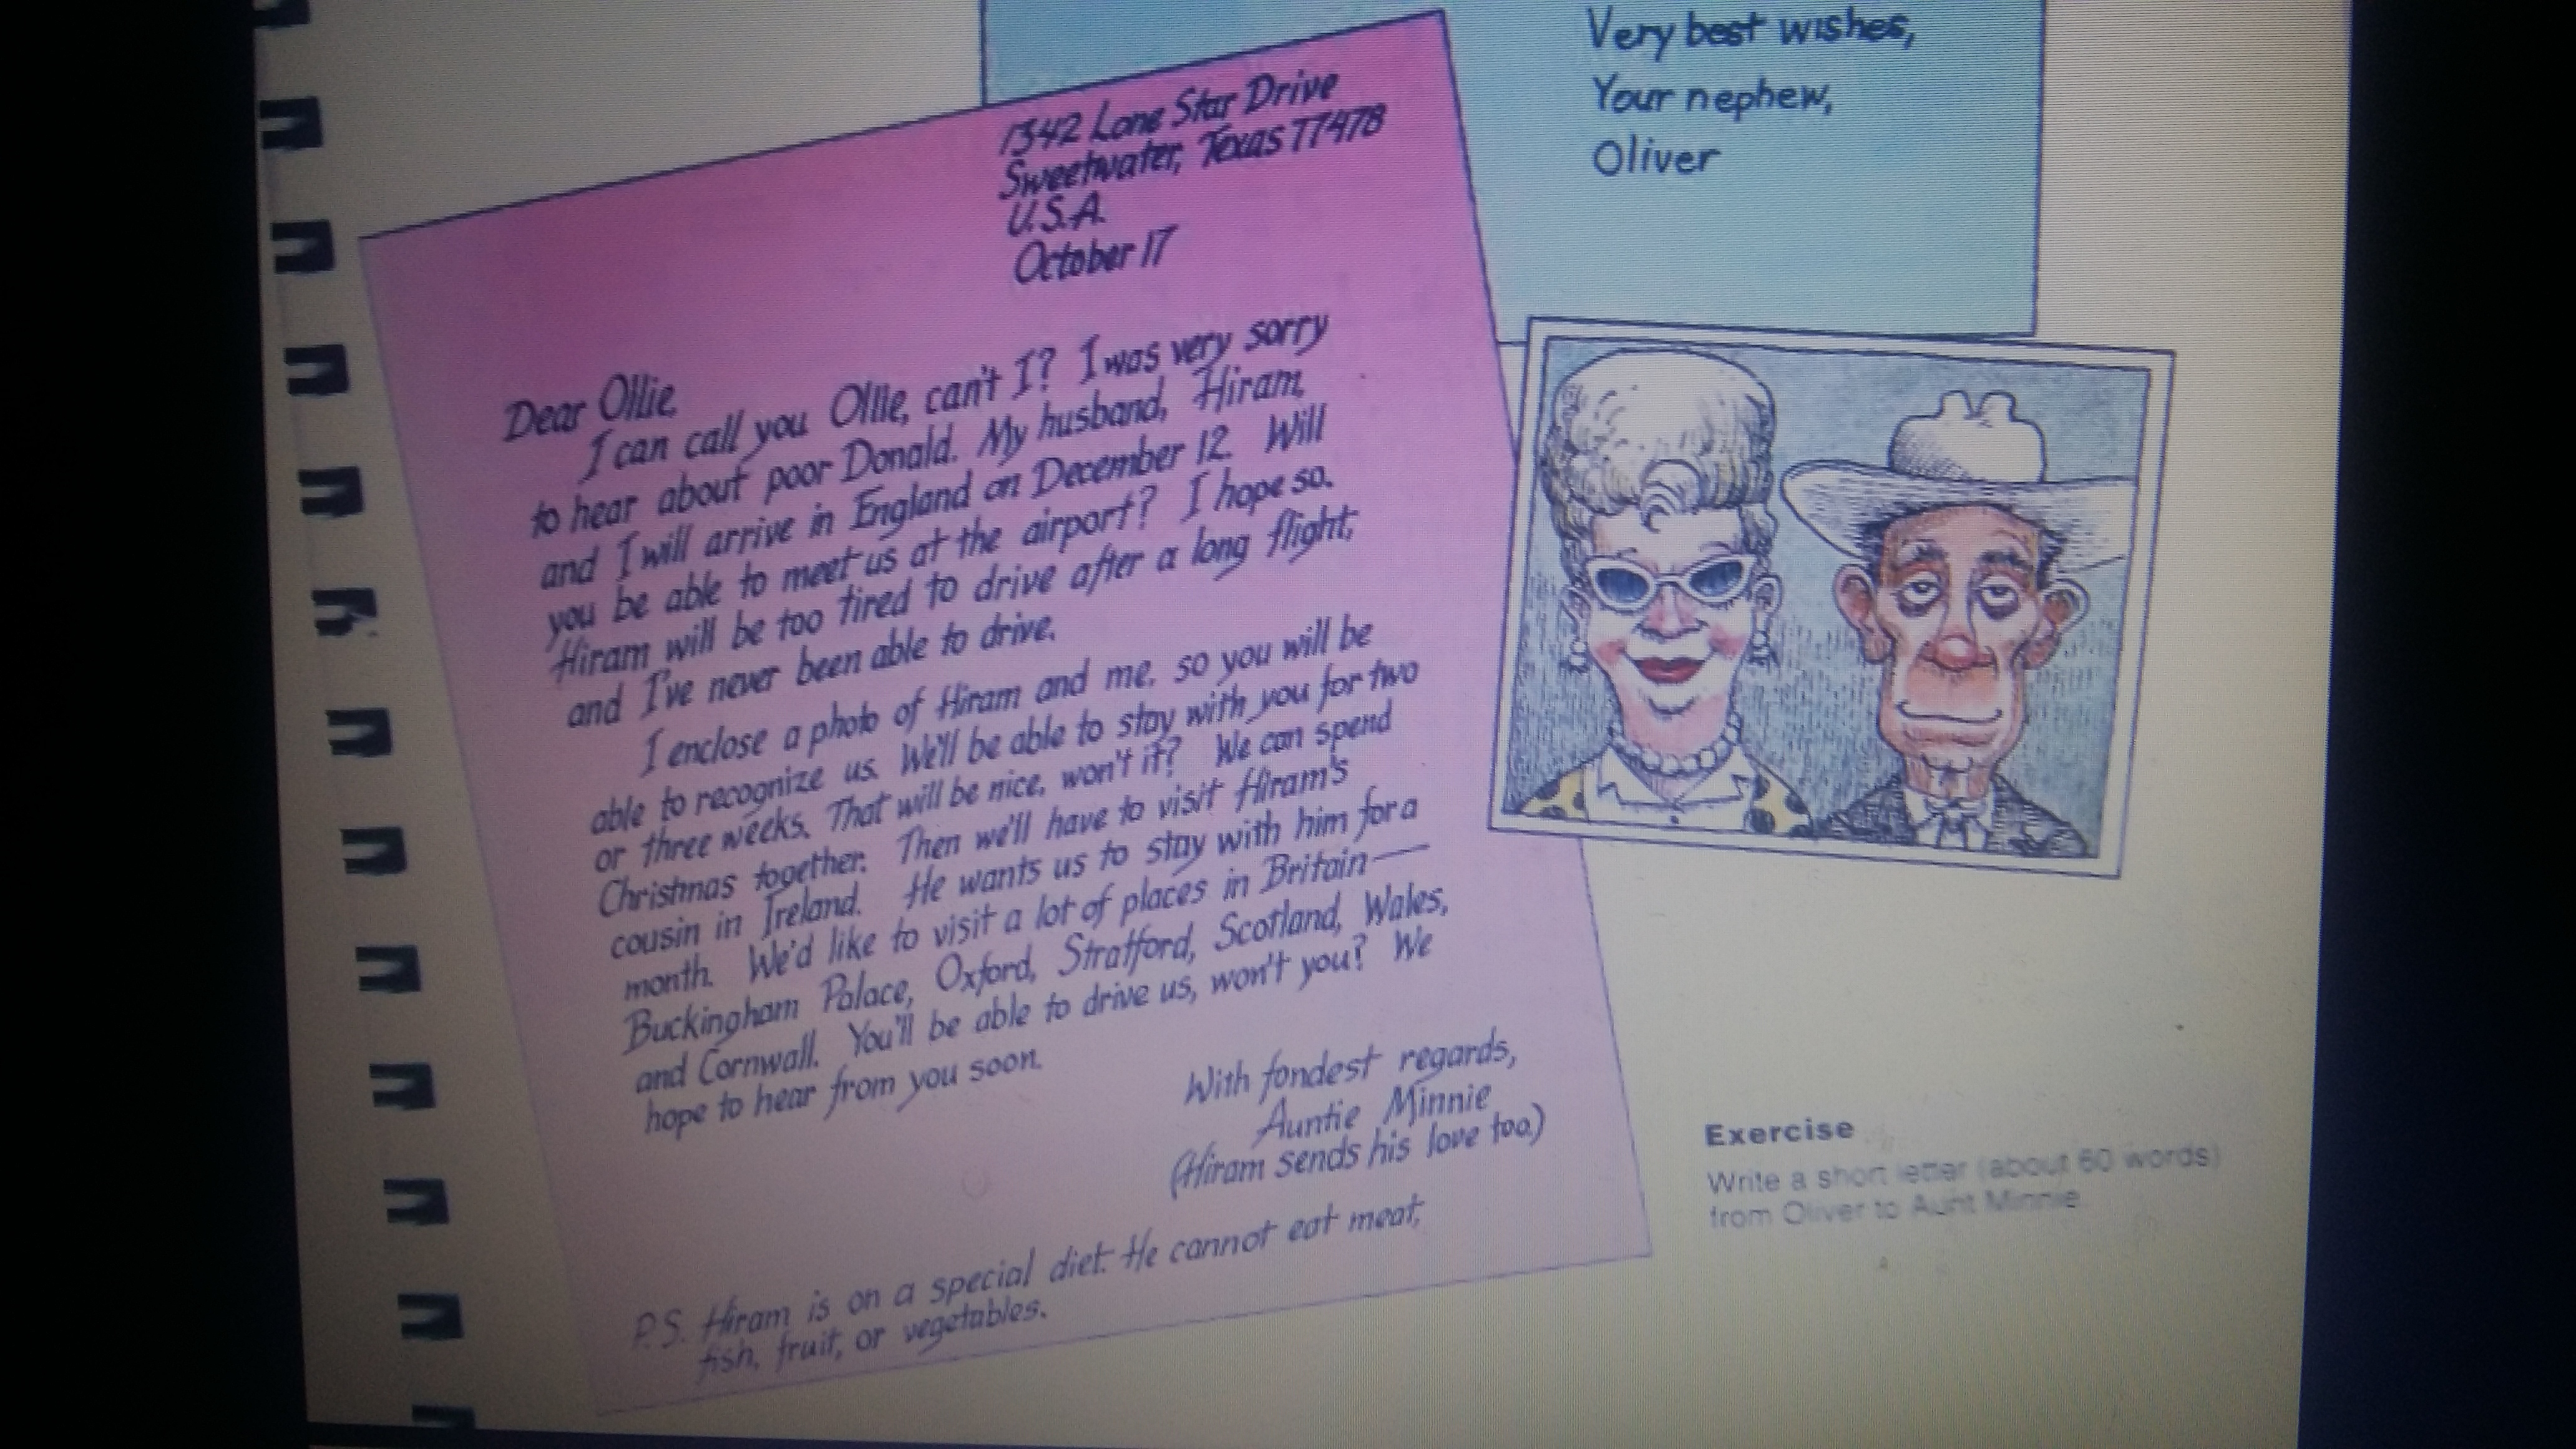 Very best wishes,
Your nephew,
Oliver
1342 Lone Star Drive
Sweetwater, Texas 77478
U.S.A.
October 17
Dear Ollie,
I can call you Ollie, can't I? I was very sorry
to hear about poor Donald. My husband, Hiram,
and I will arrive in England on December 12. Will
you be able to meet us at the airport? I hope so.
Hiram will be too tired to drive after a long flight,
and I've never been able to drive.
I enclose a photo of Hiram and me, so you will be
able to recognize us. We'll be able to stay with you for two
or three weeks. That will be nice, won't it? We can spend
Christmas together. Then we'll have to visit Hiram's
cousin in Ireland. He wants us to stay with him for a
month. We'd like to visit a lot of places in Britain—
Buckingham Palace, Oxford, Stratford, Scotland, Wales,
and Cornwall. You'll be able to drive us, won't you? We
hope to hear from you soon.
With fondest regards,
Auntie Minnie
(Hiram sends his love too.)
P.S. Hiram is on a special diet. He cannot eat meat,
fish, fruit, or vegetables.
Exercise
Write a short letter (about 60 words)
from Oliver to Aunt Minnie.